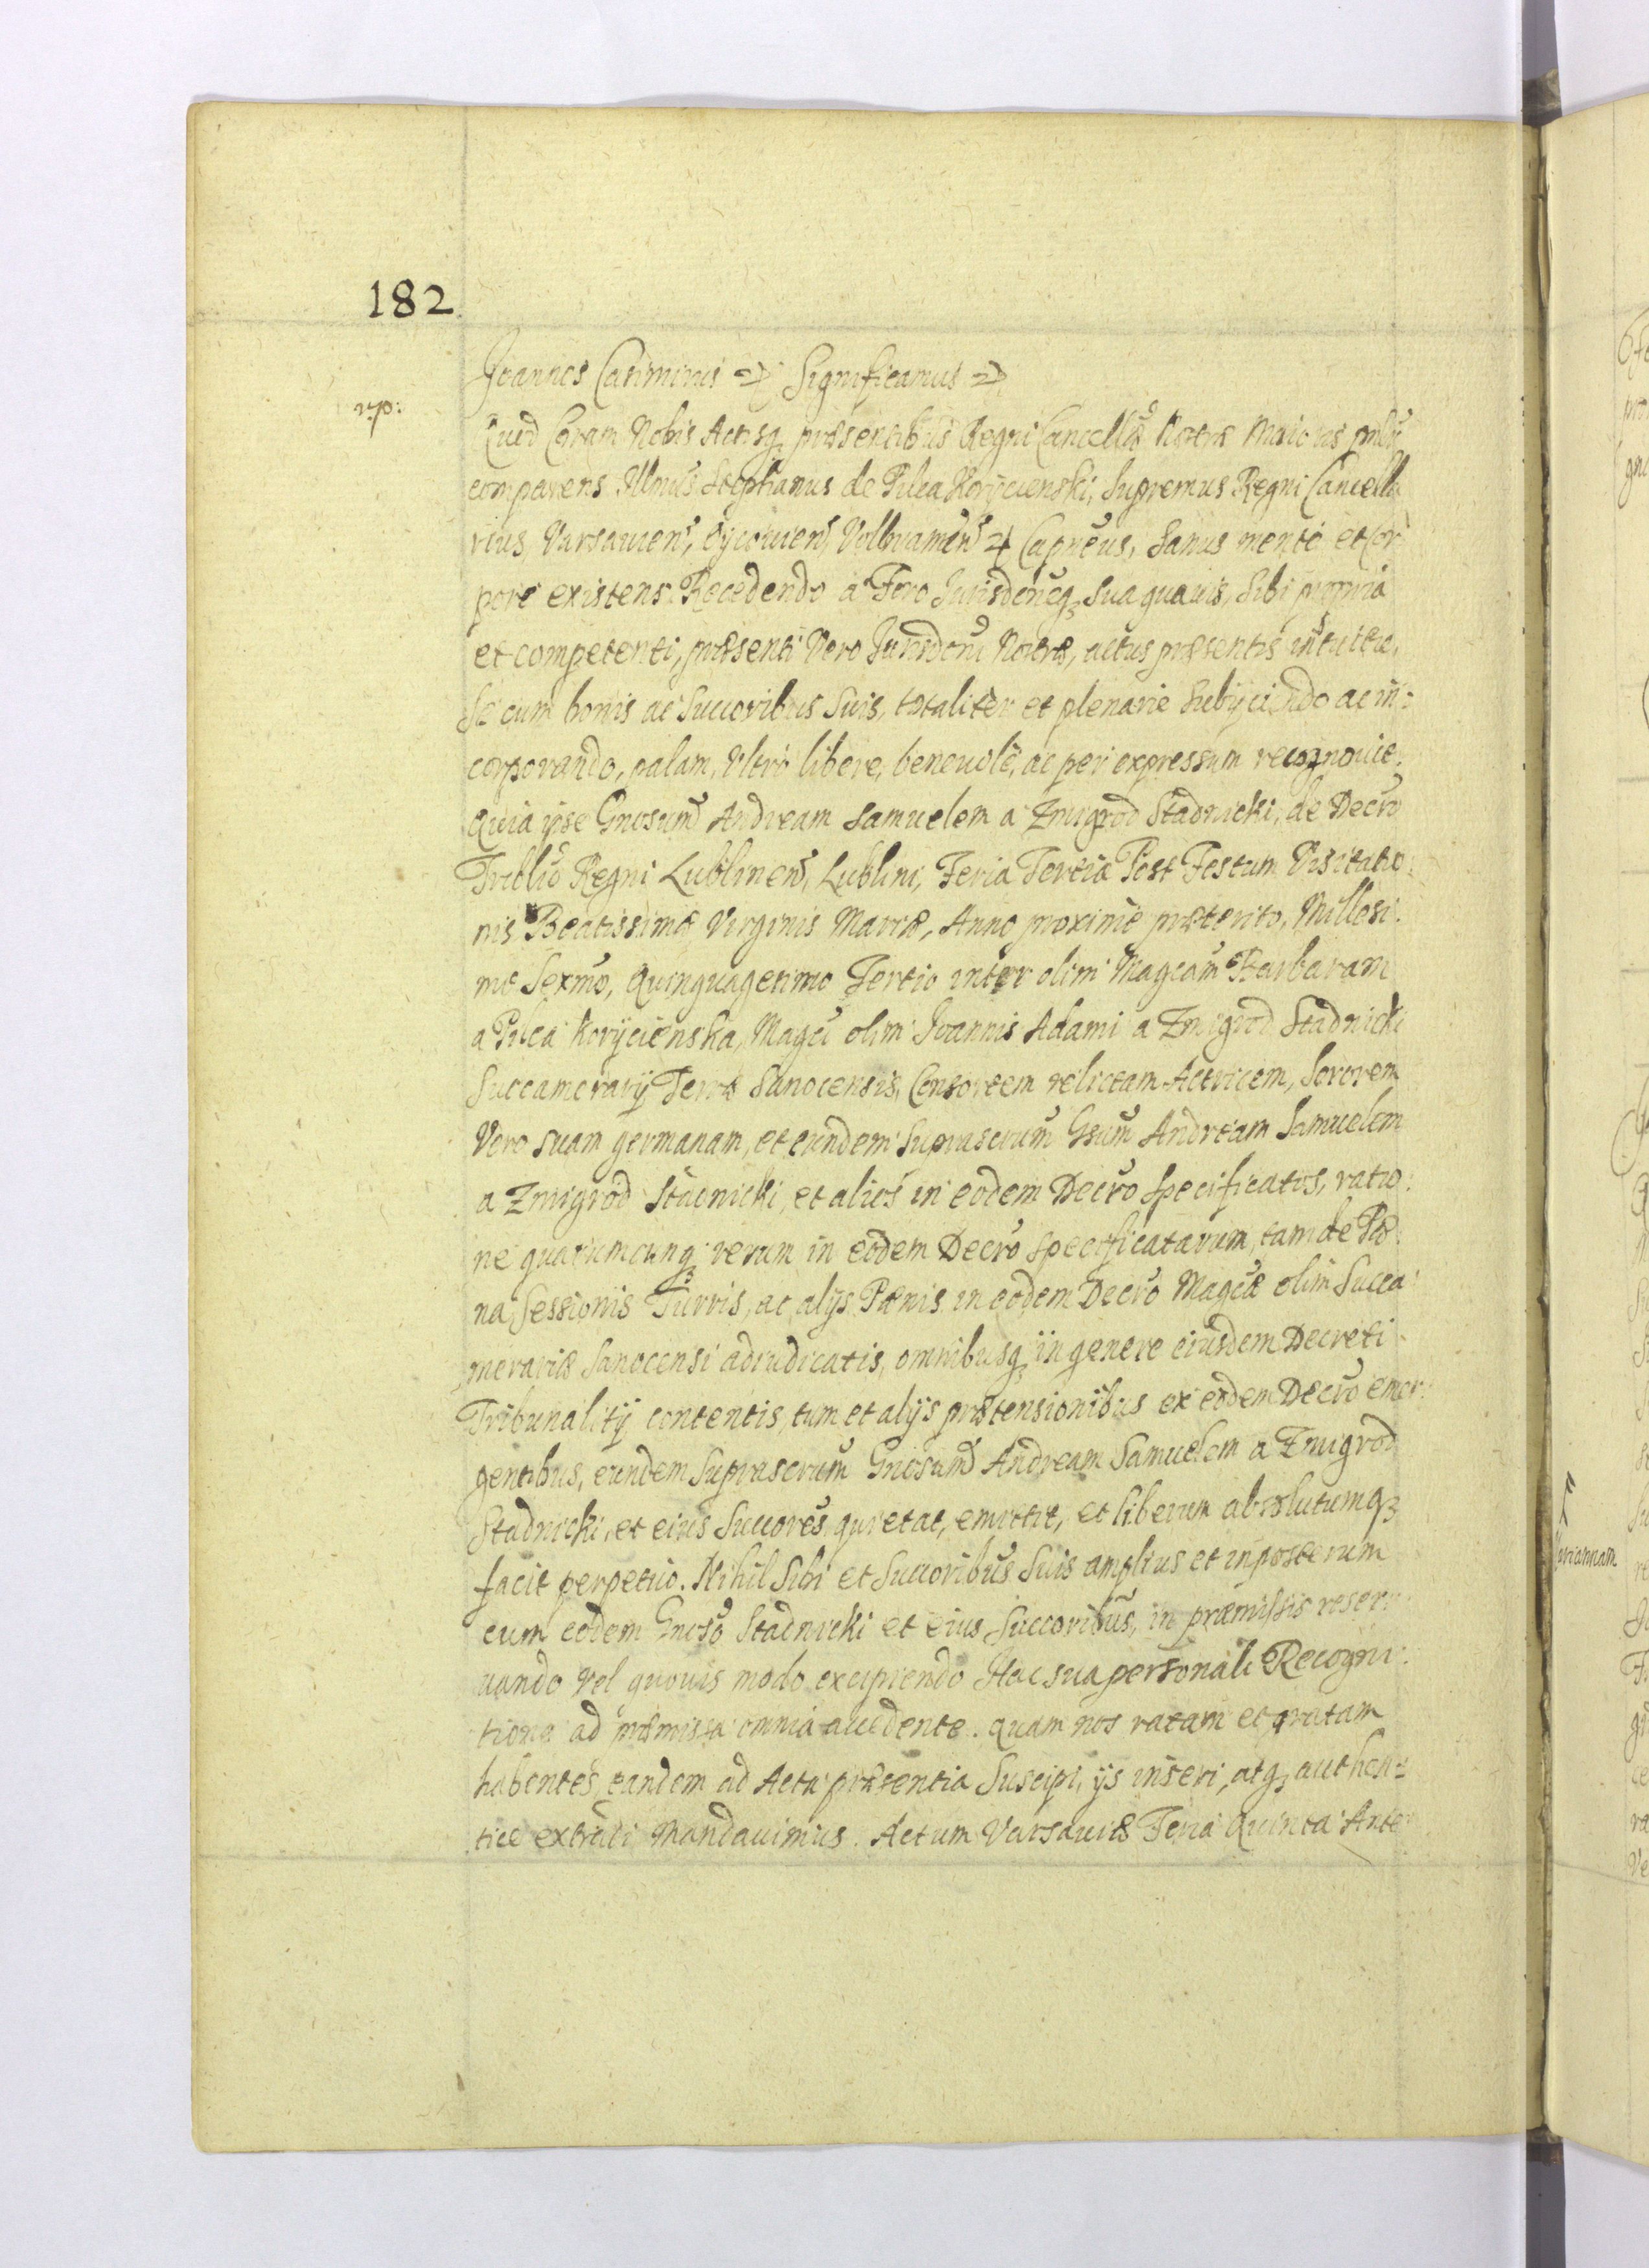 182
Joannes Casimirus Significamus
rp:
Quod Coram Nobis Actisq3 præsentibus Regni Cancellã Nostræ Maioris
comparens Illmus Stephanus de Pilca Korycienski, Supremus Regni Cancella
rius, Varsauien, Oycouien, Capneus, Sanus mente et Cor
pore existens. Recedendo a Foro Jurisdoneq3 sua quauis, Sibi propria
et competenti, præsenti Vero Jurisdoni Nostræ, actus præsentis intuitu,
Se cum bonis ac Succoribus Suis, totaliter et plenarie Subijciendo ac in:
corporando, palam, Vltro libere, beneuole, ac per expressum recognouit.
Quia ipse Gnosum Andream Samuelem a Zmigrod Stadnicki, de Decro
Triblio Regni Lublinen, Lublini, Feria Tertia Post Festum Visitatio:
nis Beatissimæ Virginis Mariæ, Anno proxime præterito, Millesi:
mo Sexmo, Quinquagesimo Tertio inter olim Magcam Barbaram
a Pilca Korycienska, Magci olim Joannis Adami a Zmigrod Stadnicki
Succamerarij Terræ Sanocensis, Consortem relictam Actricem, Sororem
Vero suam germanam, et eundem Suprascrum Gsum Andream Samuelem
a Zmigrod Stadnicki, et alios in eodem Decro specificatos, ratio:
ne quarumcunq3 rerum in eodem Decro specificatarum, tam de Pæ
na Sessionis Turris, ac alijs Pænis in eodem Decro Magcæ olim Succa:
merariæ Sanocensi adiudicatis, omnibusq3 in genere eiusdem Decreti
Tribunalitij contentis, tum et alijs prætensionibus ex eodem Decro emer:
gentibus, eundem Suprascrum Gnosum Andream Samuelem a Zmigrod
Stadnicki, et eius Succores quietat, emittit, et liberum absolutumq3
facit perpetuo. Nihil Sibi et Succoribus Suis amplius et inposterum
cum eodem Gnoso Stadnicki et eius Succoribus, in præmissis reser:
uando Vel quouis modo excipiendo Hac sua personali Recogni:
tione ad præmissa omnia accedente. Quam nos ratam et gratam
habentes, eandem ad Acta præsentia Suscipi, ijs inseri, atq3 authen:
tice extradi Mandauimus. Actum Varsauiæ Feria Quinta Ante